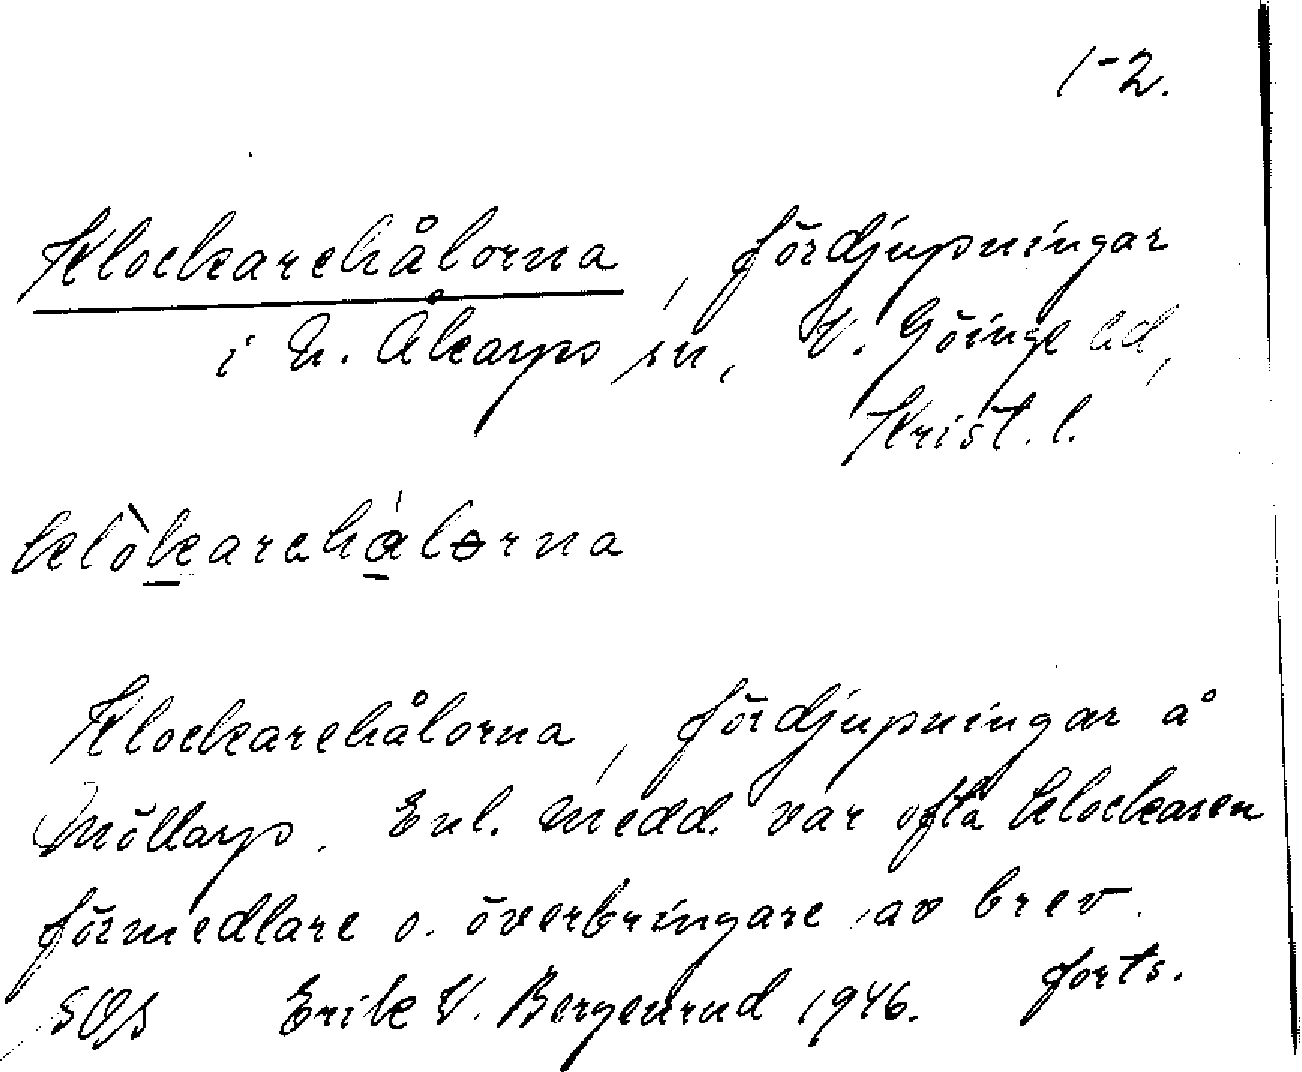 1-2.
Klockarehålorna, fördjupningar
i N. Åkarps sn, V. Göinge hd,
Krist. l.
klòkarehálorna
Klockarehålorna, fördjupningar å
Möllarp. Enl. medd. var ofta klockaren
förmedlare o. överbringare av brev.
forts.
SOS Erik V. Bergenrud 1946.